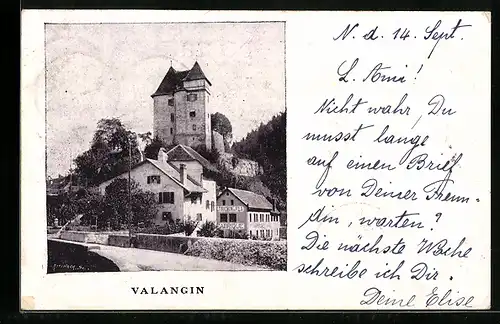 N. d. 14. Sept.
L. Ami!
Nicht wahr, Du
musst lange
auf einen Brief
von Deiner Freun-
din, warten?
Die nächste Woche
schreibe ich Dir.
Deine Elise
VALANGIN